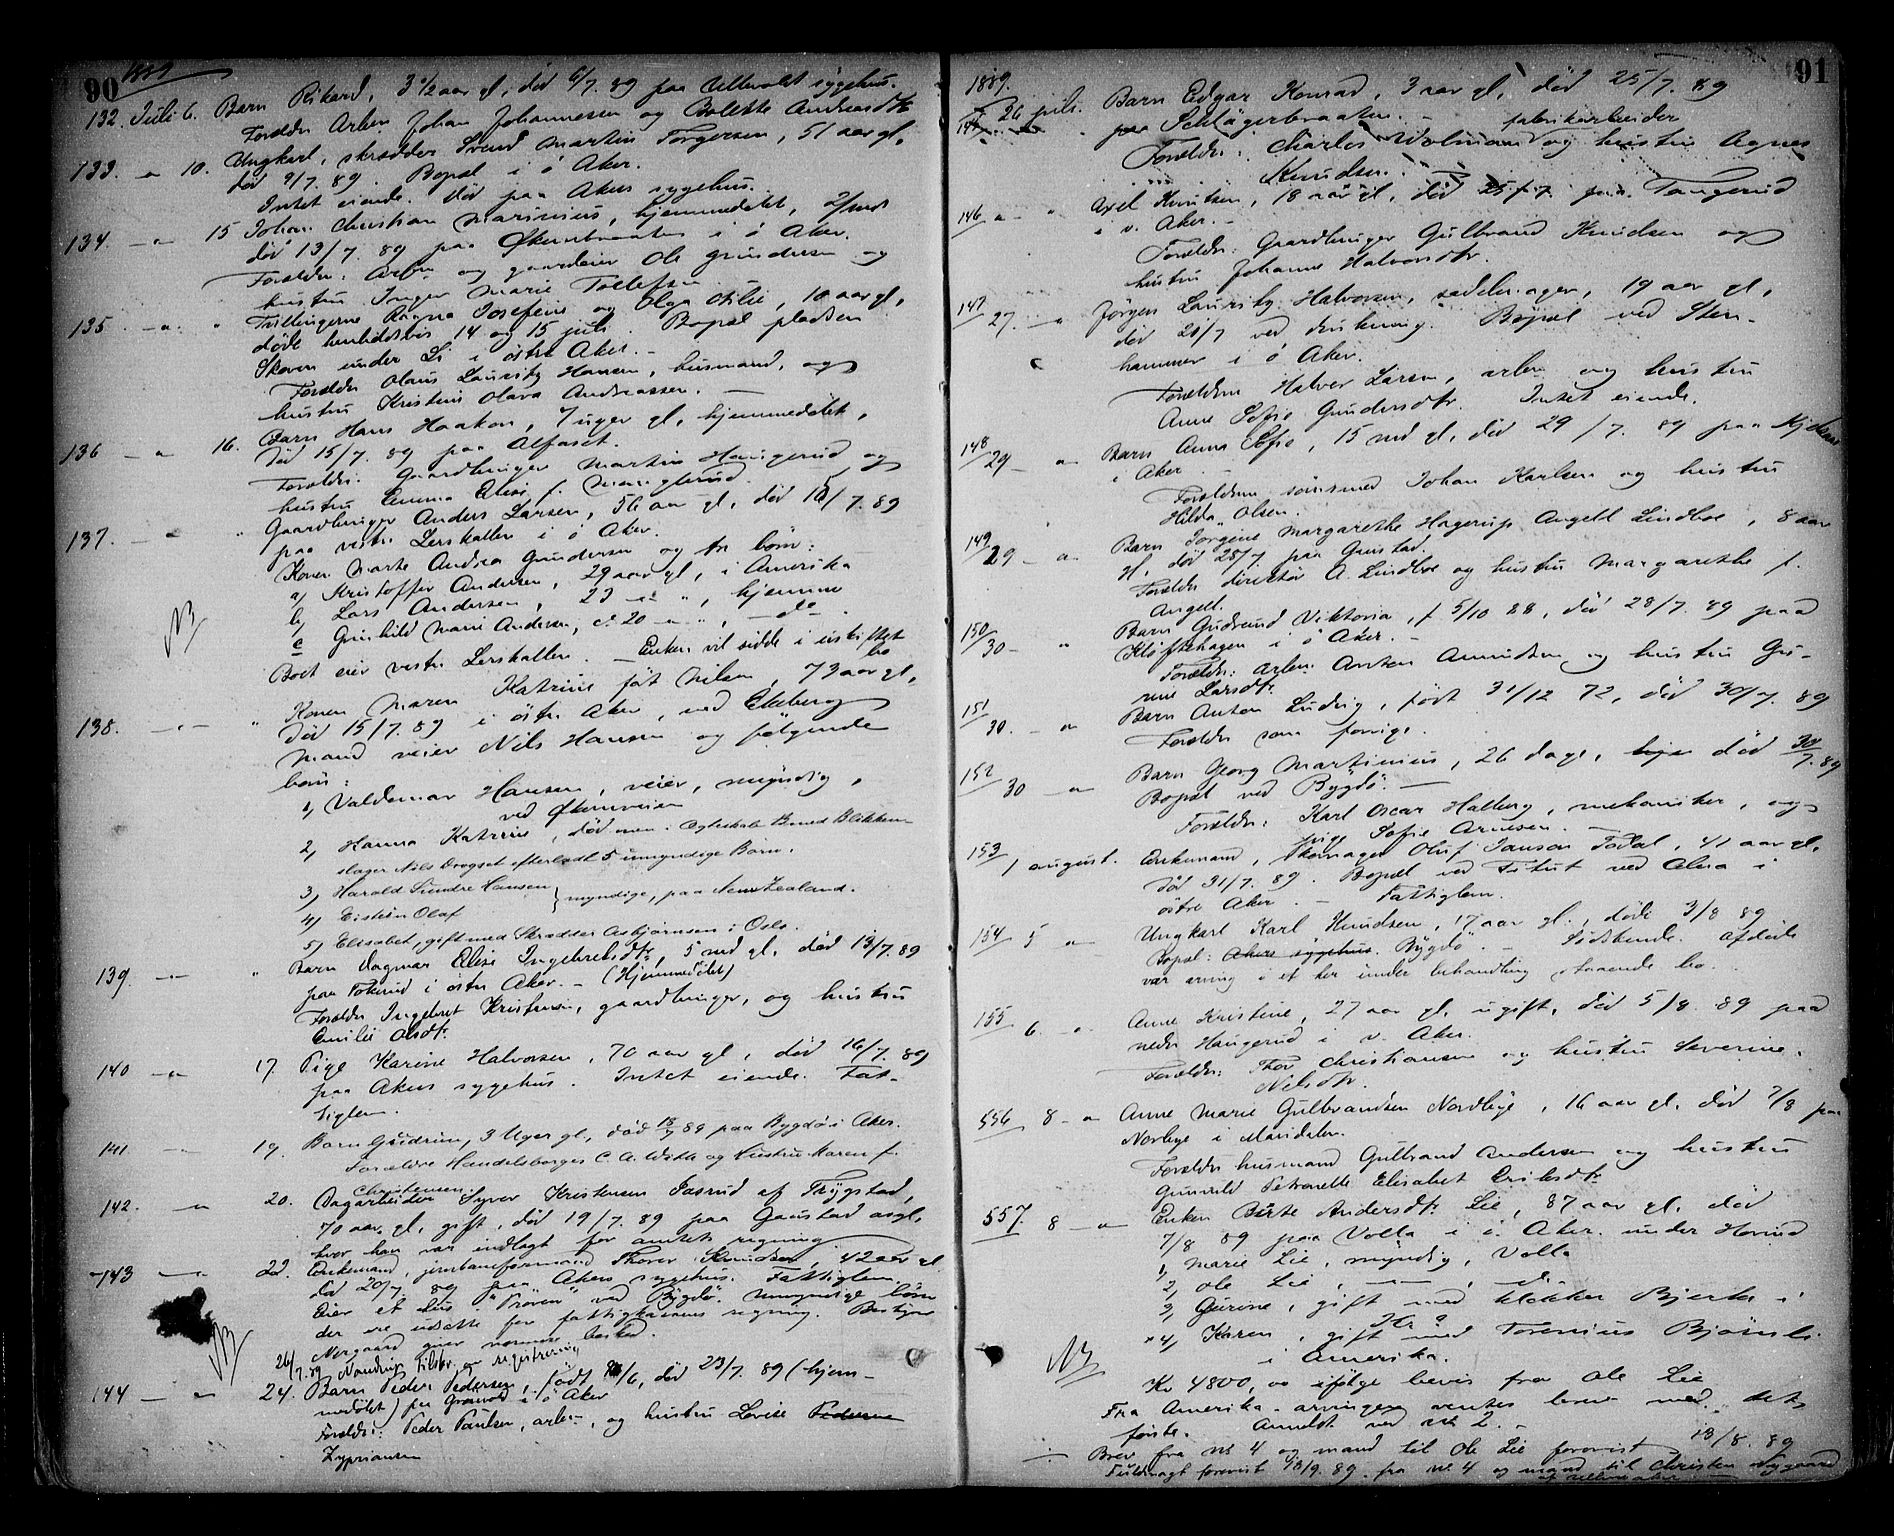 90 1889
132. Juli 6. Barn Rikard, 3 1/2 aar gl, død 6/7. 89 paa Ullevolds sygehus.
Foreldre Arbm Johan Johannessen og Bolette Andreasdtr
133. - " - 10. Ungkarl, skrædder Svend Martin Torgersen, 51 aar gl,
død 9/7. 89 Bopæl i ø Aker.
Intet eiende. Død paa Akers sygehus.
134. - " - 15 Johan Christian Marinius, hjemmedøbt, 2/md
død 13/7. 89 paa Økernbraaten i ø Aker.
Foreldre: Arbm og gaardeier Ole Gundersen og
hustru Inger Marie Tollefsen
135. - " - " Tvillingerne Ragna Josefine og Olga Otilie, 10 aar gl,
døde henholdsvis 14 og 15 juli. Bopæl pladsen
Skoven under Li i østre Aker. -
Foreldre Olaus Lauritz Hansen, husmand, og
hustru Kristine Olava Andreassen. -
136 - " - 16. Barn Hans Haakon, 7 uger gl, hjemmedøbt,
død 15/7. 89 paa Alfaset.
Foreldre: Gaardbruger Martin Haugerud og
hustru Emma Elise f. Manglerud.
137. - " - " Gaardbruger Anders Larsen, 56 aar gl, død 15/7. 89
paa vestre Lerskallen i ø Aker.
Konen Marte Andrea Gundersen og tre børn:
a, Kristoffer Andersen, 29 aar gl, i Amerika
b, Lars Andersen, 23 - " - ", hjemme
c Gunhild Marie Andersen, c. 20 - " - ", - do -.
NB
Boet eier vestre Lerskallen. - Enken vil sidde i uskiftet
bo
138. - " - " Konen Maren Katrine født Nilsen, 73 aar gl,
død 15/7. 89 i østre Aker, ved Ekeberg
Mand veier Nils Hansen og følgende
børn:
1, Valdemar Hansen, veier, myndig,
ved Økernveien
2, Hanna Katrine, død men: Ægteskab B med Blikken-
slager Nils Drogset efterladt 5 umyndige Børn.
3, Harald Sindre Hansen } myndige, paa New Zealand.
4, Eistein Olaf
5, Elisabet, gift med Skrædder Asbjørnsen i Oslo.
139. - " - " Barn Dagmar Elise Ingebretsdtr, 5 md gl, død 13/7. 89
paa Tokerud i østre Aker. - (Hjemmedøbt)
Foreldre Ingebret Kristensen, gaardbruger, og hustru
Emilie Olsdtr.
140 - " - 17. Pige Karine Halvorsen, 70 aar gl, død 16/7. 89
paa Akers sygehus. Intet eiende. Fat-
tiglem.
141 - " - 19. Barn Gudrun, 3 Uger gl., død 18/7 89 paa Bygdø i Aker.
Forældre Handelsborger C. A. Wath og Hustru Maren f.
Christensen.
142. - " - 20. Dagarbeider Syver Kristensen Fosrud af Trygstad,
70 aar gl, gift, død 19/7. 89 paa Gaustad asyl,
hvor han var indlagt for amtets regning
143 - " - 22. Enkemand, jernbaneformand Thorer Knudsen, 42 aar gl
død 20/7. 89 paa Akers sygehus. Fattiglem.
Eier et hus i "Prøven" ved Bygdø. Umyndige børn
der ere udsatte for fattigkassens regning. Bestyrer
Nergaard giver nærmere besked.
NB 26/7. 89 registrering
144 - " - 24. Barn Peder Pedersen, født 26/6, død 23/7. 89 (hjem-
medøbt) paa Grorud i ø Aker
Foreldre: Peder Paulsen, arbm, og hustru Lovise Pedersen
Zypriansen
91
1889.
145 26 juli. Barn Edgar Konrad, 3 aar gl, død 25/7. 89
paa Schlägerbraaten. - fabrikarbeider
Foreldre: Charles Wolman og hustru Agnes
Knudsen.
146 - " - " Axel Knutsen, 18 aar gl, død 25/7. paa Tangerud
i v. Aker. -
Foreldre: Gaardbruger Gulbrand Knudsen og
hustru Johanne Halvorsdtr.
147 27. - " Jørgen Lauritz Halvorsen, sadelmager, 19 aar gl,
død 21/7 ved drukning. Bopæl ved Sten-
hammer i ø Aker.
Foreldrene Halvor Larsen, arbm og hustru
Anne Sofie Gundersdtr. Intet eiende.
148 29 - " Barn Anna Sofie, 15 md gl, død 29/7. 89 paa
i Aker
Foreldrene sømsmed Johan Karlsen og hustru
Hilda Olsen.
149 29 - " - Barn Jørgine Margarethe Hagerup Angell Lindboe, 8 aar
gl, død 28/7 paa Gaustad.
Foreldre direktør A. Lindboe og hustru Margarethe f.
Angell.
150 30 - " Barn Gudrund Viktoria, f 5/10 88, død 28/7. 89 paa
Kløftehagen i ø Aker. -
Foreldre: arbm. Anton Amundsen og hustru Gu-
rine Larsdtr.
151 30. - " Barn Anton Ludvig, født 31/12 72, død 30/7. 89
Foreldre som forrige.
152 30 - " Barn Georg Martinius, 26 dage, hje død 30/7. 89
Bopæl ved Bygdø. -
Foreldre: Karl Oscar Halberg, mekaniker, og
pige Sofie Arnesen.
153 1 august. Enkemand, skomager Oluf Janson Todal, 41 aar gl,
død 31/7. 89. Bopæl ved Fitut ved Alna i
østre Aker. - Fattiglem.
154 5 - " Ungkarl Karl Knudsen, 17 aar gl., døde 3/8 89
Bopæl: Akers sygehus. Bygdø. - Sidsthende. Afdøde
var arving i et her under behandling staaende bo.
155 6. - " Anne Kristine, 27 aar gl, ugift, død 5/8. 89 paa
nedre Haugerud i v. Aker.
Foreldre: Thor Christiansen og hustru Severine
Nilsdtr.
556 8 - " Anne Marie Gulbrandsen Nordbye, 16 aar gl, død 7/8 paa
Norbye i Maridalen.
Foreldre husmand Gulbrand Andersen og hustru
Gunvild Petronelle Elisabet Eriksdtr.
557. 8 - " - Enken Birte Andersdtr Lie, 87 aar gl, død
7/8 89 paa Volla i ø. Aker under Hovind
1, Marie Lie, myndig, Volla
2, Ole Lie, - " -, - " -
3, Gurine, gift med klokker Bjerke i
Str?
NB
×4, Karen, gift med Torenius Bjørnli
i Amerika.
Kr 4800,00 ifølge bevis fra Ole Lie
Fra Amerika-arvingen ventes brev med det
første. Anmeldt ved nr 2. -
Brev fra nr 4 og mand til Ole Lie forevist 13/8. 89
Fuldmagt forevist 13/9. 89. fra nr. 4 og mand til Christen Nygaard